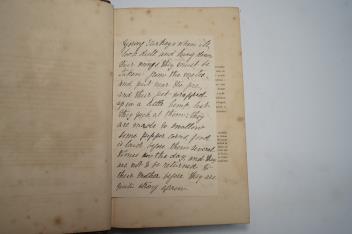 Young Turkeys when ill,
look dull and hang down
their wings they must be
taken from the
and put near the fire,
and their
up in a little hemp
they peck at them: they
are made to swallow
some pepper corns, food
is laid before them several
times in the day, and they
are not to be returned to
their mother before they are
quite strong again.